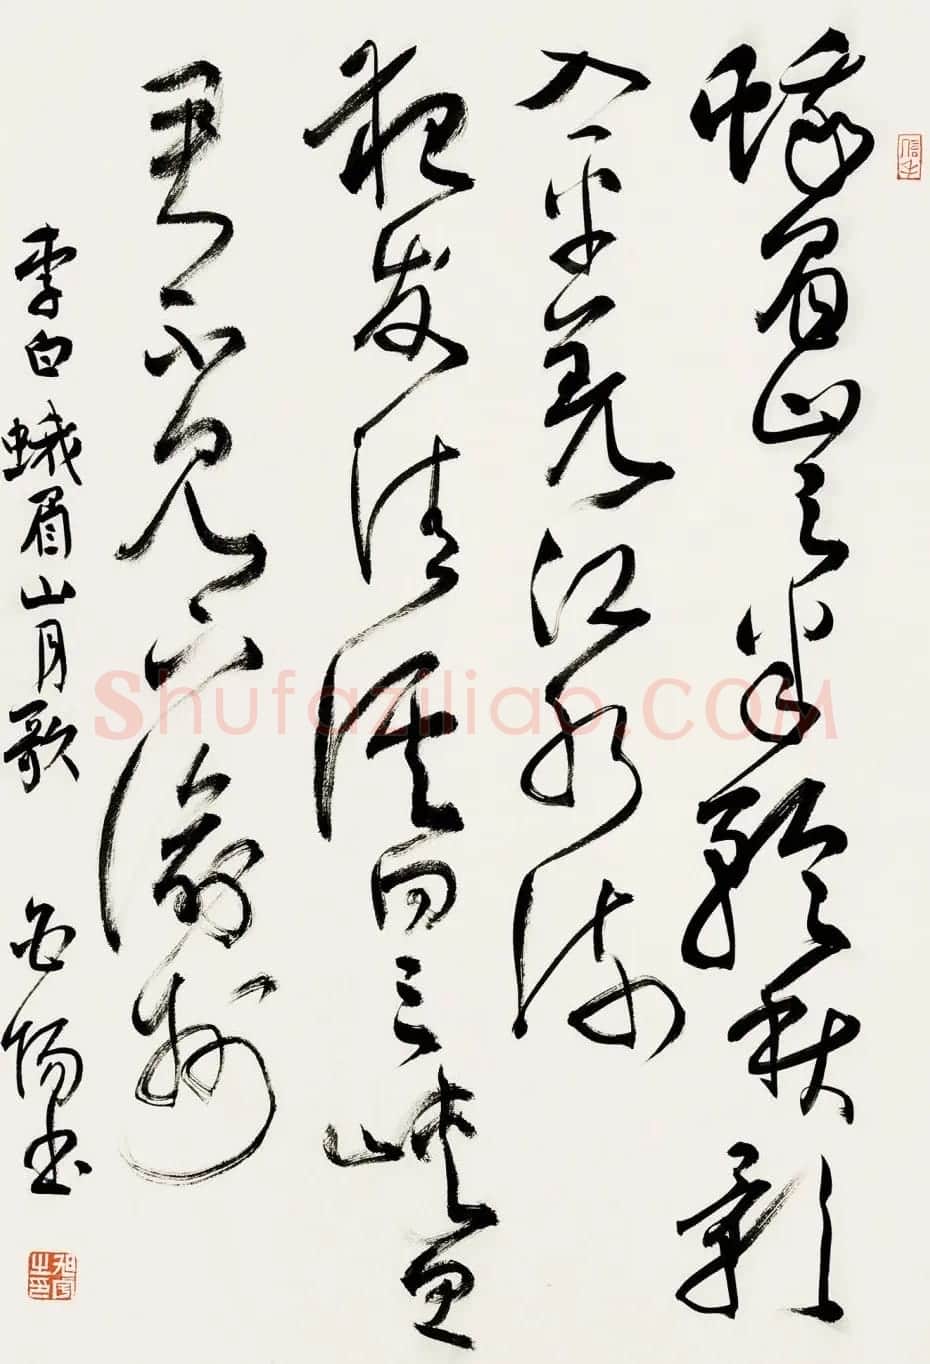 蛾眉山月半輪秋影
入平羌江水流
夜发清溪向三峡思
君不见下渝州
李白 蛾眉山月歌 书
旭宇之印
Shufaziliao.COM